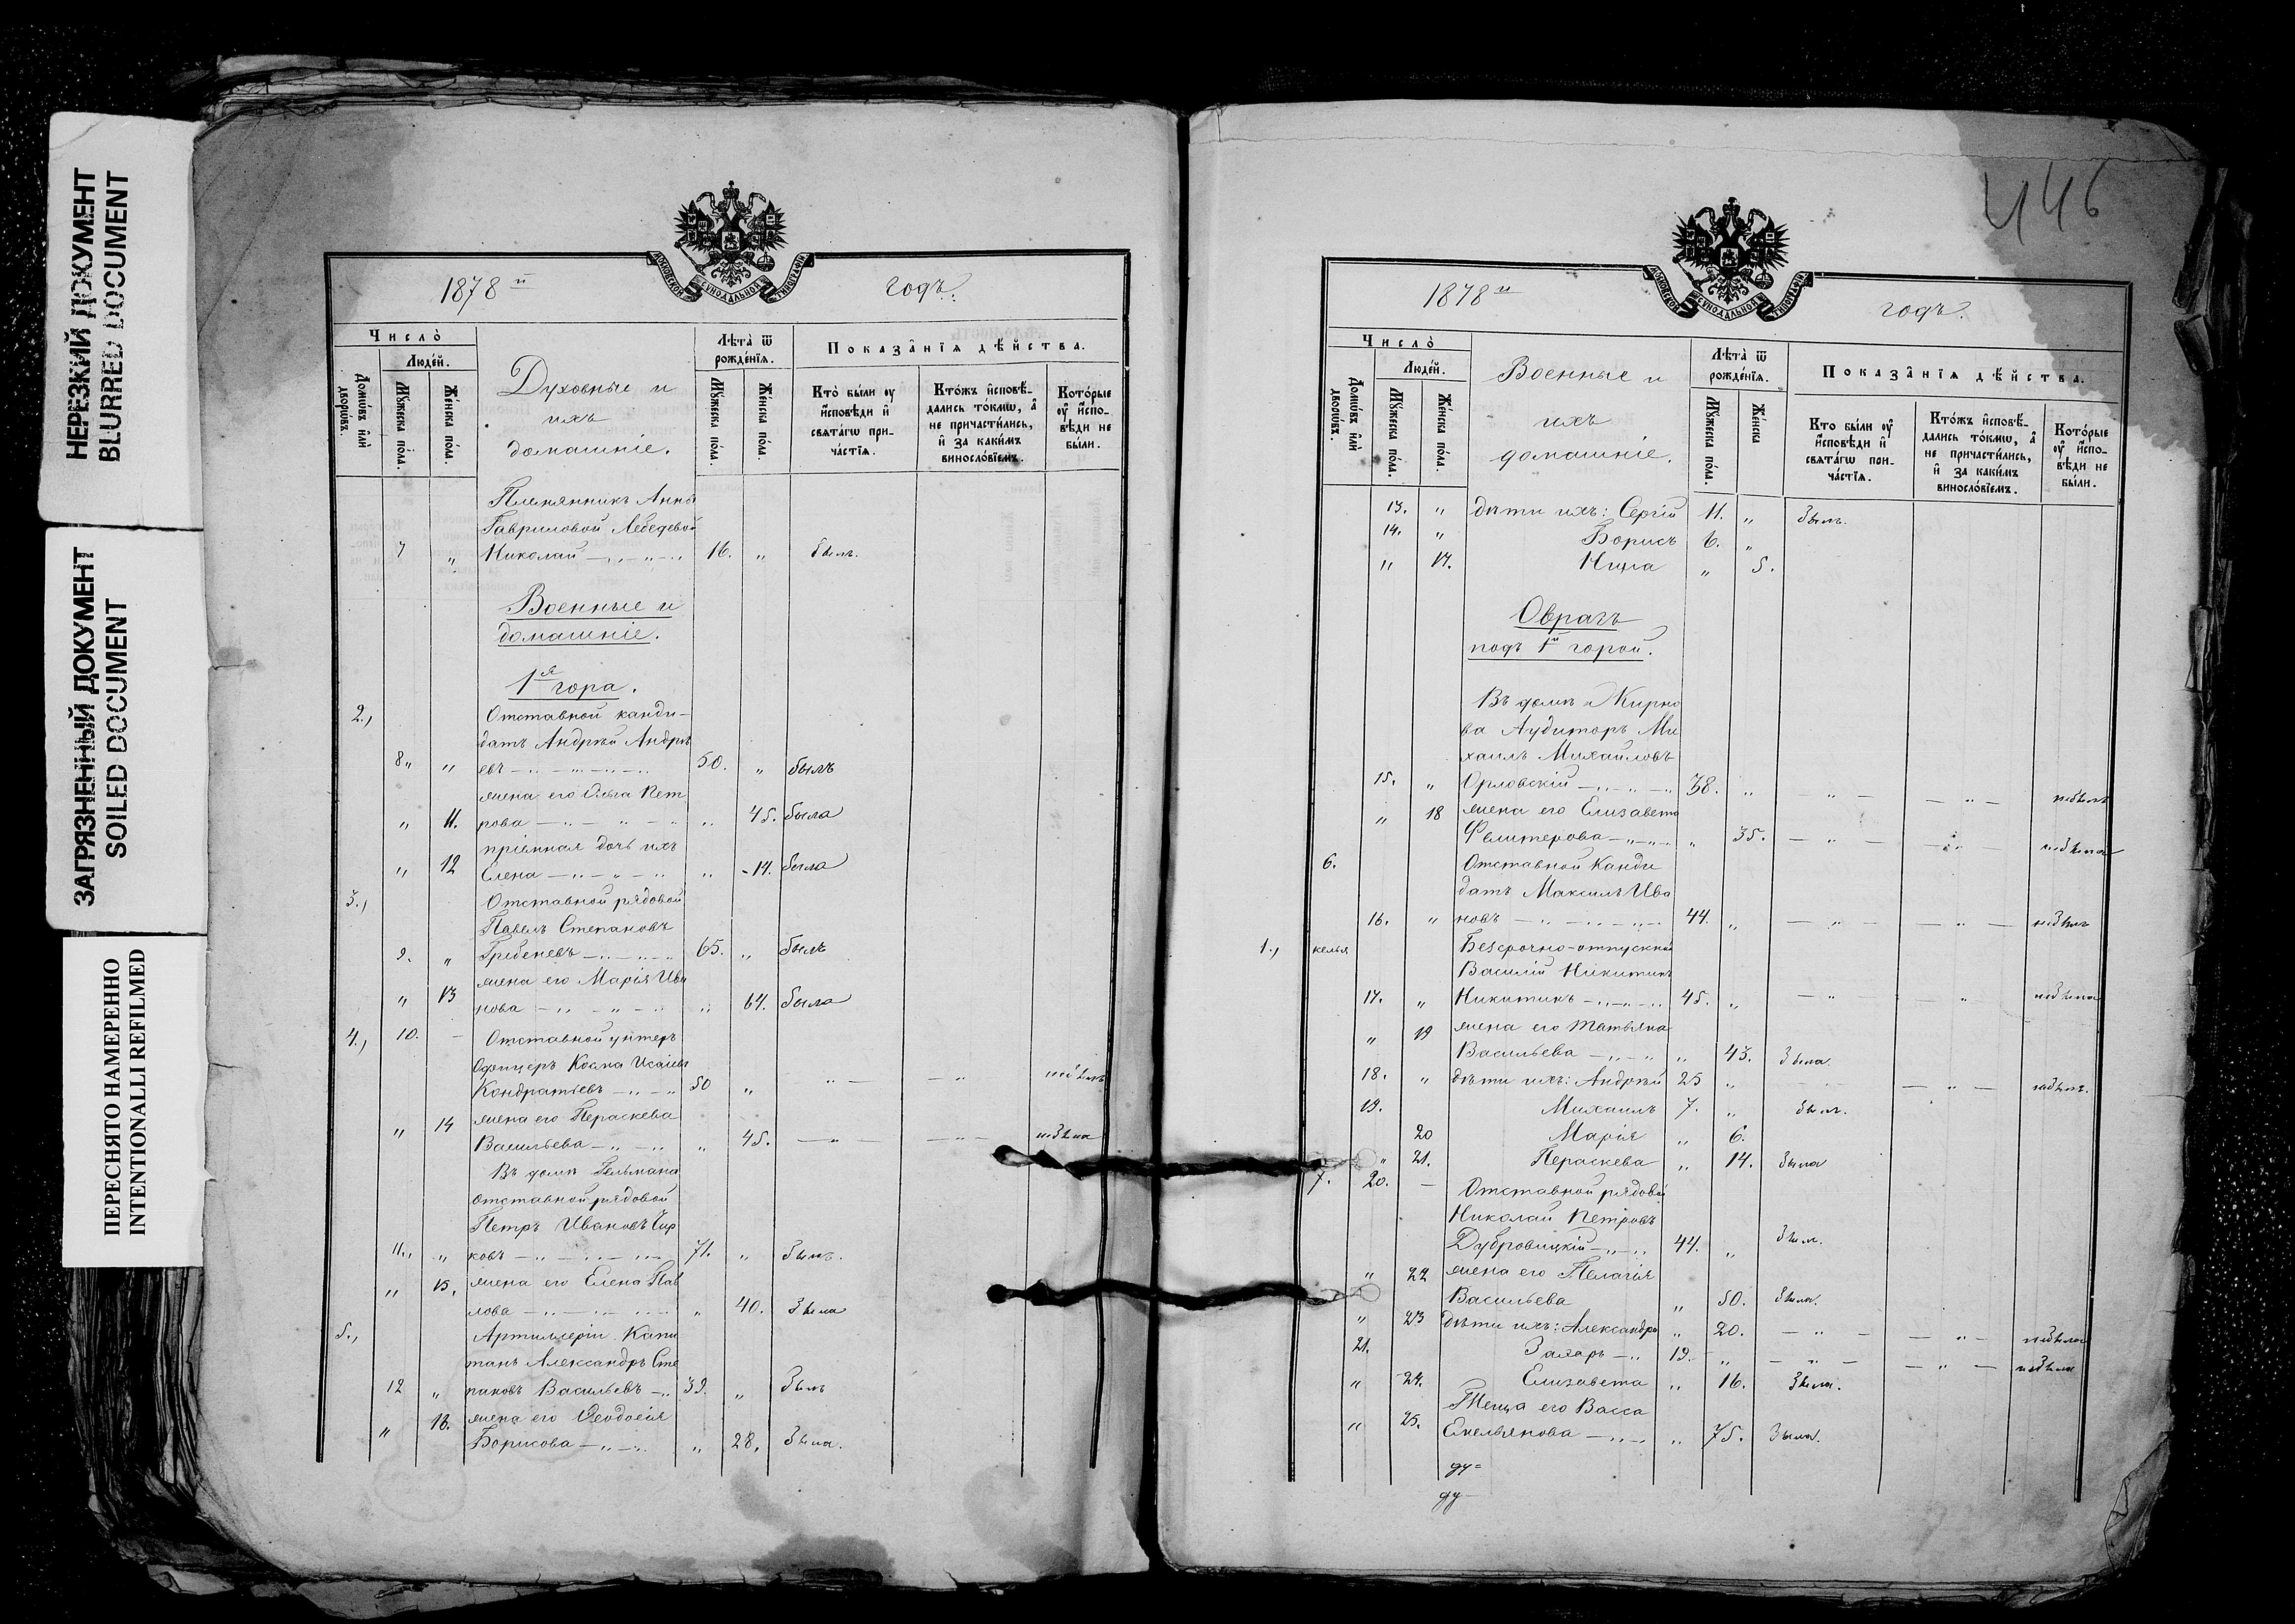 НЕРЕЗКИЙ ДОКУМЕНТ
BLURRED DOCUMENT
ЗАГРЯЗНЕННЫЙ ДОКУМЕНТ
SOILED DOCUMENT
ПЕРЕСНЯТО НАМЕРЕННО
INTENTIONALLI REFILMED
МОСКОВСКОЙ СѴНОДАЛЬНОЙ ТИПОГРАФІИ
1878й годъ.
Число̀
Люде́й.
Домѡ́въ и҆лѝ дворѡ́въ.
Мꙋ́жеска по́ла.
Же́нска по́ла.
Духовные и
ихъ
домашніе.
Лѣта̀ ѿ рожде́нїѧ.
Мꙋ́жеска по́ла.
Же́нска по́ла.
Показа̂нїѧ дѣ́йства.
Кто̀ бы́ли ᲂу҆
и҆́сповѣди и҆
свѧта́гѡ при-
ча́стїѧ.
Кто́жъ и҆сповѣ́-
дались то́кмѡ, а҆
не причасти́лись,
и҆ за каки́мъ
виносло́вїемъ.
Кото́рые
ᲂу҆ и҆́спо-
вѣди не
бы́ли.
Племянникъ Анны
Гавриловой Лебедевой
7 „ Николай — „ — „ — 16. „ былъ.
Военные и
домашніе.
1я гора.
2., Отставной канди-
датъ Андрей Андре
8 „ „ евъ — „ — „ — 50. „ былъ
жена его Ольга Пет
„ 11. рова — „ — „ — „ 45. была
пріемная дочь ихъ
„ 12 Елена — „ — „ — „ 14. была
3., Отставной рядовой
Павелъ Степановъ
9. „ Гребеневъ — „ — „ 65. „ былъ
жена его Марія Ива
„ 13 нова — „ — „ — „ 64. была
4., 10. — Отставной унтеръ
Офицеръ Косма Исаіевъ
Кондратьевъ — „ — „ 50 „ „ — — „ небылъ
жена его Параскева
„ 14 Васильева — „ — „ „ 45. — „ — — „ — небыла
Въ домѣ Гельмана
отставной рядовой
Петръ Ивановъ Чир
11., „ ковъ — „ — „ — „ 71. „ былъ.
„ 15. жена его Елена Пав
лова — „ — „ — „ „ 40. была
5., Артиллеріи Капи
танъ Александръ Сте
12 „ пановъ Васильевъ — „ 39. „ былъ
„ 16. жена его Ѳеодосія
Борисова — „ — „ „ 28. была.
446
1878й годъ.
Число̀
Люде́й.
Домѡ́въ и҆лѝ дворѡ́въ.
Мꙋ́жеска по́ла.
Же́нска по́ла.
Военные и
ихъ
домашніе.
Лѣта̀ ѿ рожде́нїѧ.
Мꙋ́жеска по́ла.
Же́нска
Показа̂нїѧ дѣ́йства.
Кто̀ бы́ли ᲂу҆
и҆́сповѣди и҆
свѧта́гѡ при-
ча́стїѧ.
Кто́жъ и҆сповѣ́-
дались то́кмѡ, а҆
не причасти́лись,
и҆ за каки́мъ
виносло́вїемъ.
Кото́рые
ᲂу҆ и҆́спо-
вѣди не
бы́ли.
13. „ дѣти ихъ: Сергій 11. „ былъ.
14. „ Борисъ 6. „
„ 17. Нина „ 5.
Оврагъ
подъ 1й горой.
Въ домѣ Жирно
ва Аудиторъ Ми
хаилъ Михайловъ
15. „ Орловскій — „ — „ — 38. „ — „ — — „ — небылъ
„ 18 жена его Елизавета
— „ — „ „ 35. — „ — — „ — небыла
6. Отставной Канди
датъ Максимъ Ива
16. „ новъ — „ — „ — 44. „ — „ — — „ — небылъ
1., келья Безсрочно-отпускной
Василій Никитинъ
17. „ Никитинъ — „ — „ 45. „ — „ — „ небылъ
„ 19 жена его Татьяна
Васильева — „ — „ „ 43. была.
18. „ дѣти ихъ: Андрей 25 „ — „ — небылъ.
19. Михаилъ 7. „ былъ.
20 Марія „ 6.
„ 21. Параскева „ 14. была
7. 20. — Отставной рядовой
Николай Петровъ
Дубровицкій — „ — „ 44. „ былъ.
„ 22 жена его Пелагія
Васильева „ 50. была.
„ 23 дѣти ихъ: Александра „ 20. — „ — — „ — небыла
21. Захаръ — „ 19. — „ — „ — — „ — небылъ
„ 24. Елизавета „ 16. была.
Теща его Васса
„ 25. Емельянова — „ — „ „ 75. была.
ду=
ду—